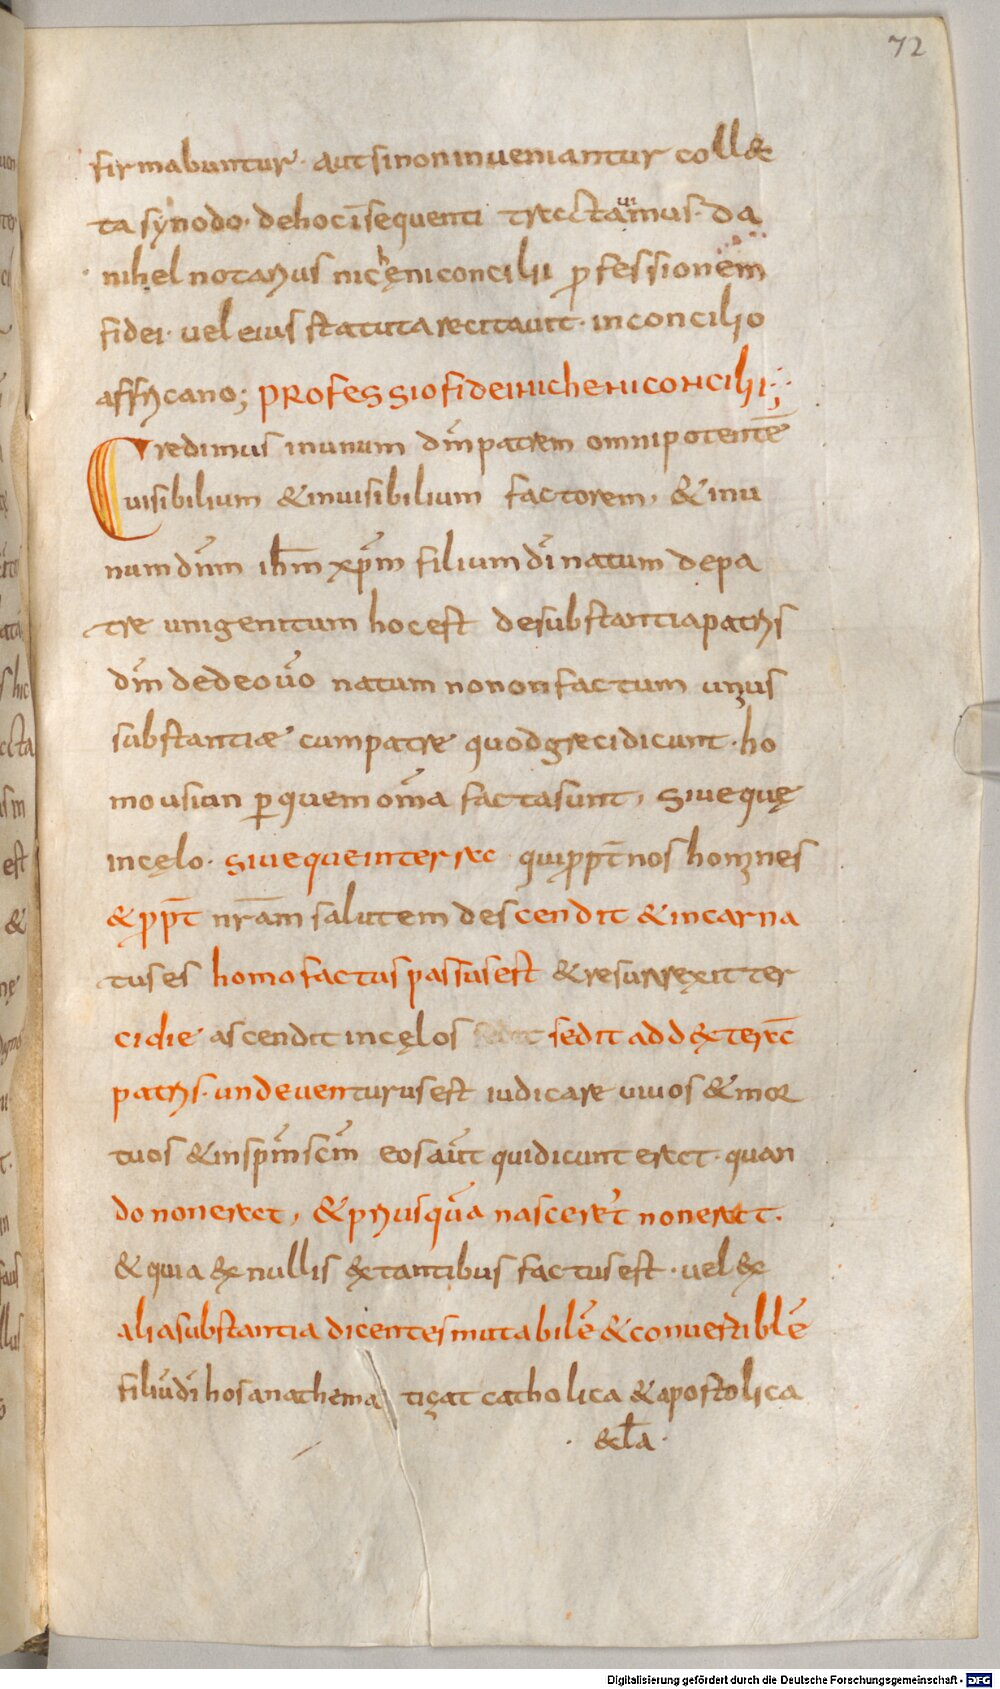 72
firmabuntur · aut si non inueniantur coll&
ta synodo · de hoc īsequenti tractauimus · da
nihel notarius nicheni concilii ꝓfessionem
fidei · uel eius statuta recitauit · in concilio
affricano; professio fidei nicheni concilii;
Credimus in unum dm̄ patrem omnipotentē
uisibilium & inuisibilium factorem, & inu
num dn̄m ihm̄ xp̄m filium dī natum de pa
tre unigenitum hoc est de substantia patris
dm̄ de deo uō natum non factum unius
substantiæ cum patre quod greci dicunt · ho
mousian ꝑ quem om̄a facta sunt, siue quę
in cęlo · siue que in terra qui ꝓpt̄ nos homines
& ꝓpt̄ nr̄am salutem descendit & incarna
tus es homo factus passus est & resurrexit ter
cidie ascendit in cęlos sedit sedit ad dexterā
patris · unde uenturus est iudicare uiuos & mor
tuos & in sp̄m sc̄m eos aūt qui dicunt erat · quan
do non erat, & priusquā nascer&ur non erat ·
& quia ex nullis extantibus factus est · uel ex
alia substantia dicentes mutabilē & conuertiblē
filiū dī hos anathema tiçat catholica & apostolica
· eccl̄a ·
Digitalisierung gefördert durch die Deutsche Forschungsgemeinschaft - DFG